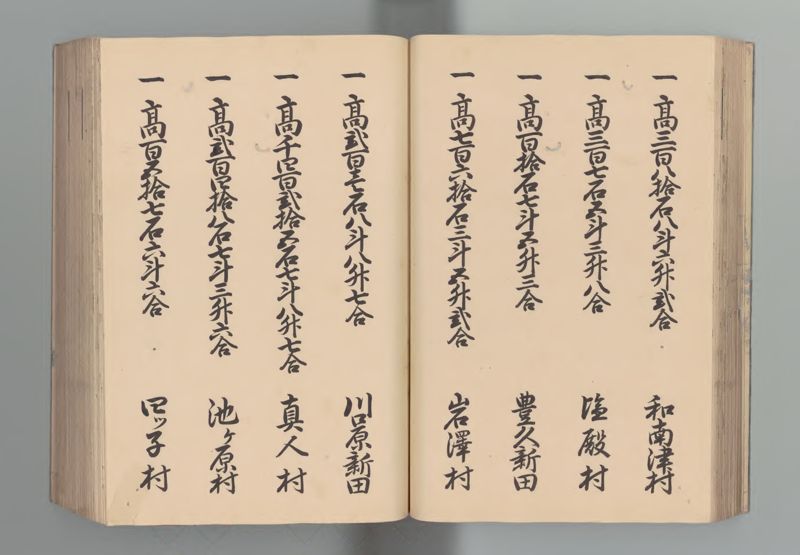 一 高三百八拾石八斗六升弐合 和南津村
一 高三百七石五斗三升八合 塩殿村
一 高百拾石七斗五升三合 豊久新田
一 高七百六拾石三斗五升弐合 岩澤村
一 高弐百壱石八斗八升七合 川口原新田
一 高千四百弐拾五石七斗八升七合 真人村
一 高弐百四拾八石七斗三升六合 池ヶ原村
一 高百五拾七石六斗六合 四ッ子村